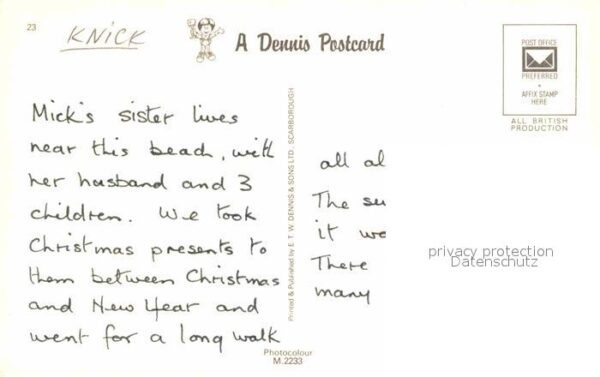 23
KNICK
A Dennis Postcard
POST OFFICE
PREFERRED
AFFIX STAMP
HERE
ALL BRITISH
PRODUCTION
Mick's sister lives
near this beach, with
her husband and 3
children. We took
Christmas presents to
them between Christmas
and New Year and
went for a long walk
Printed & Published by E. T. W. DENNIS & SONS LTD. SCARBOROUGH
all al
The su
it wo
There
many
privacy protection
Datenschutz
Photocolour
M.2233